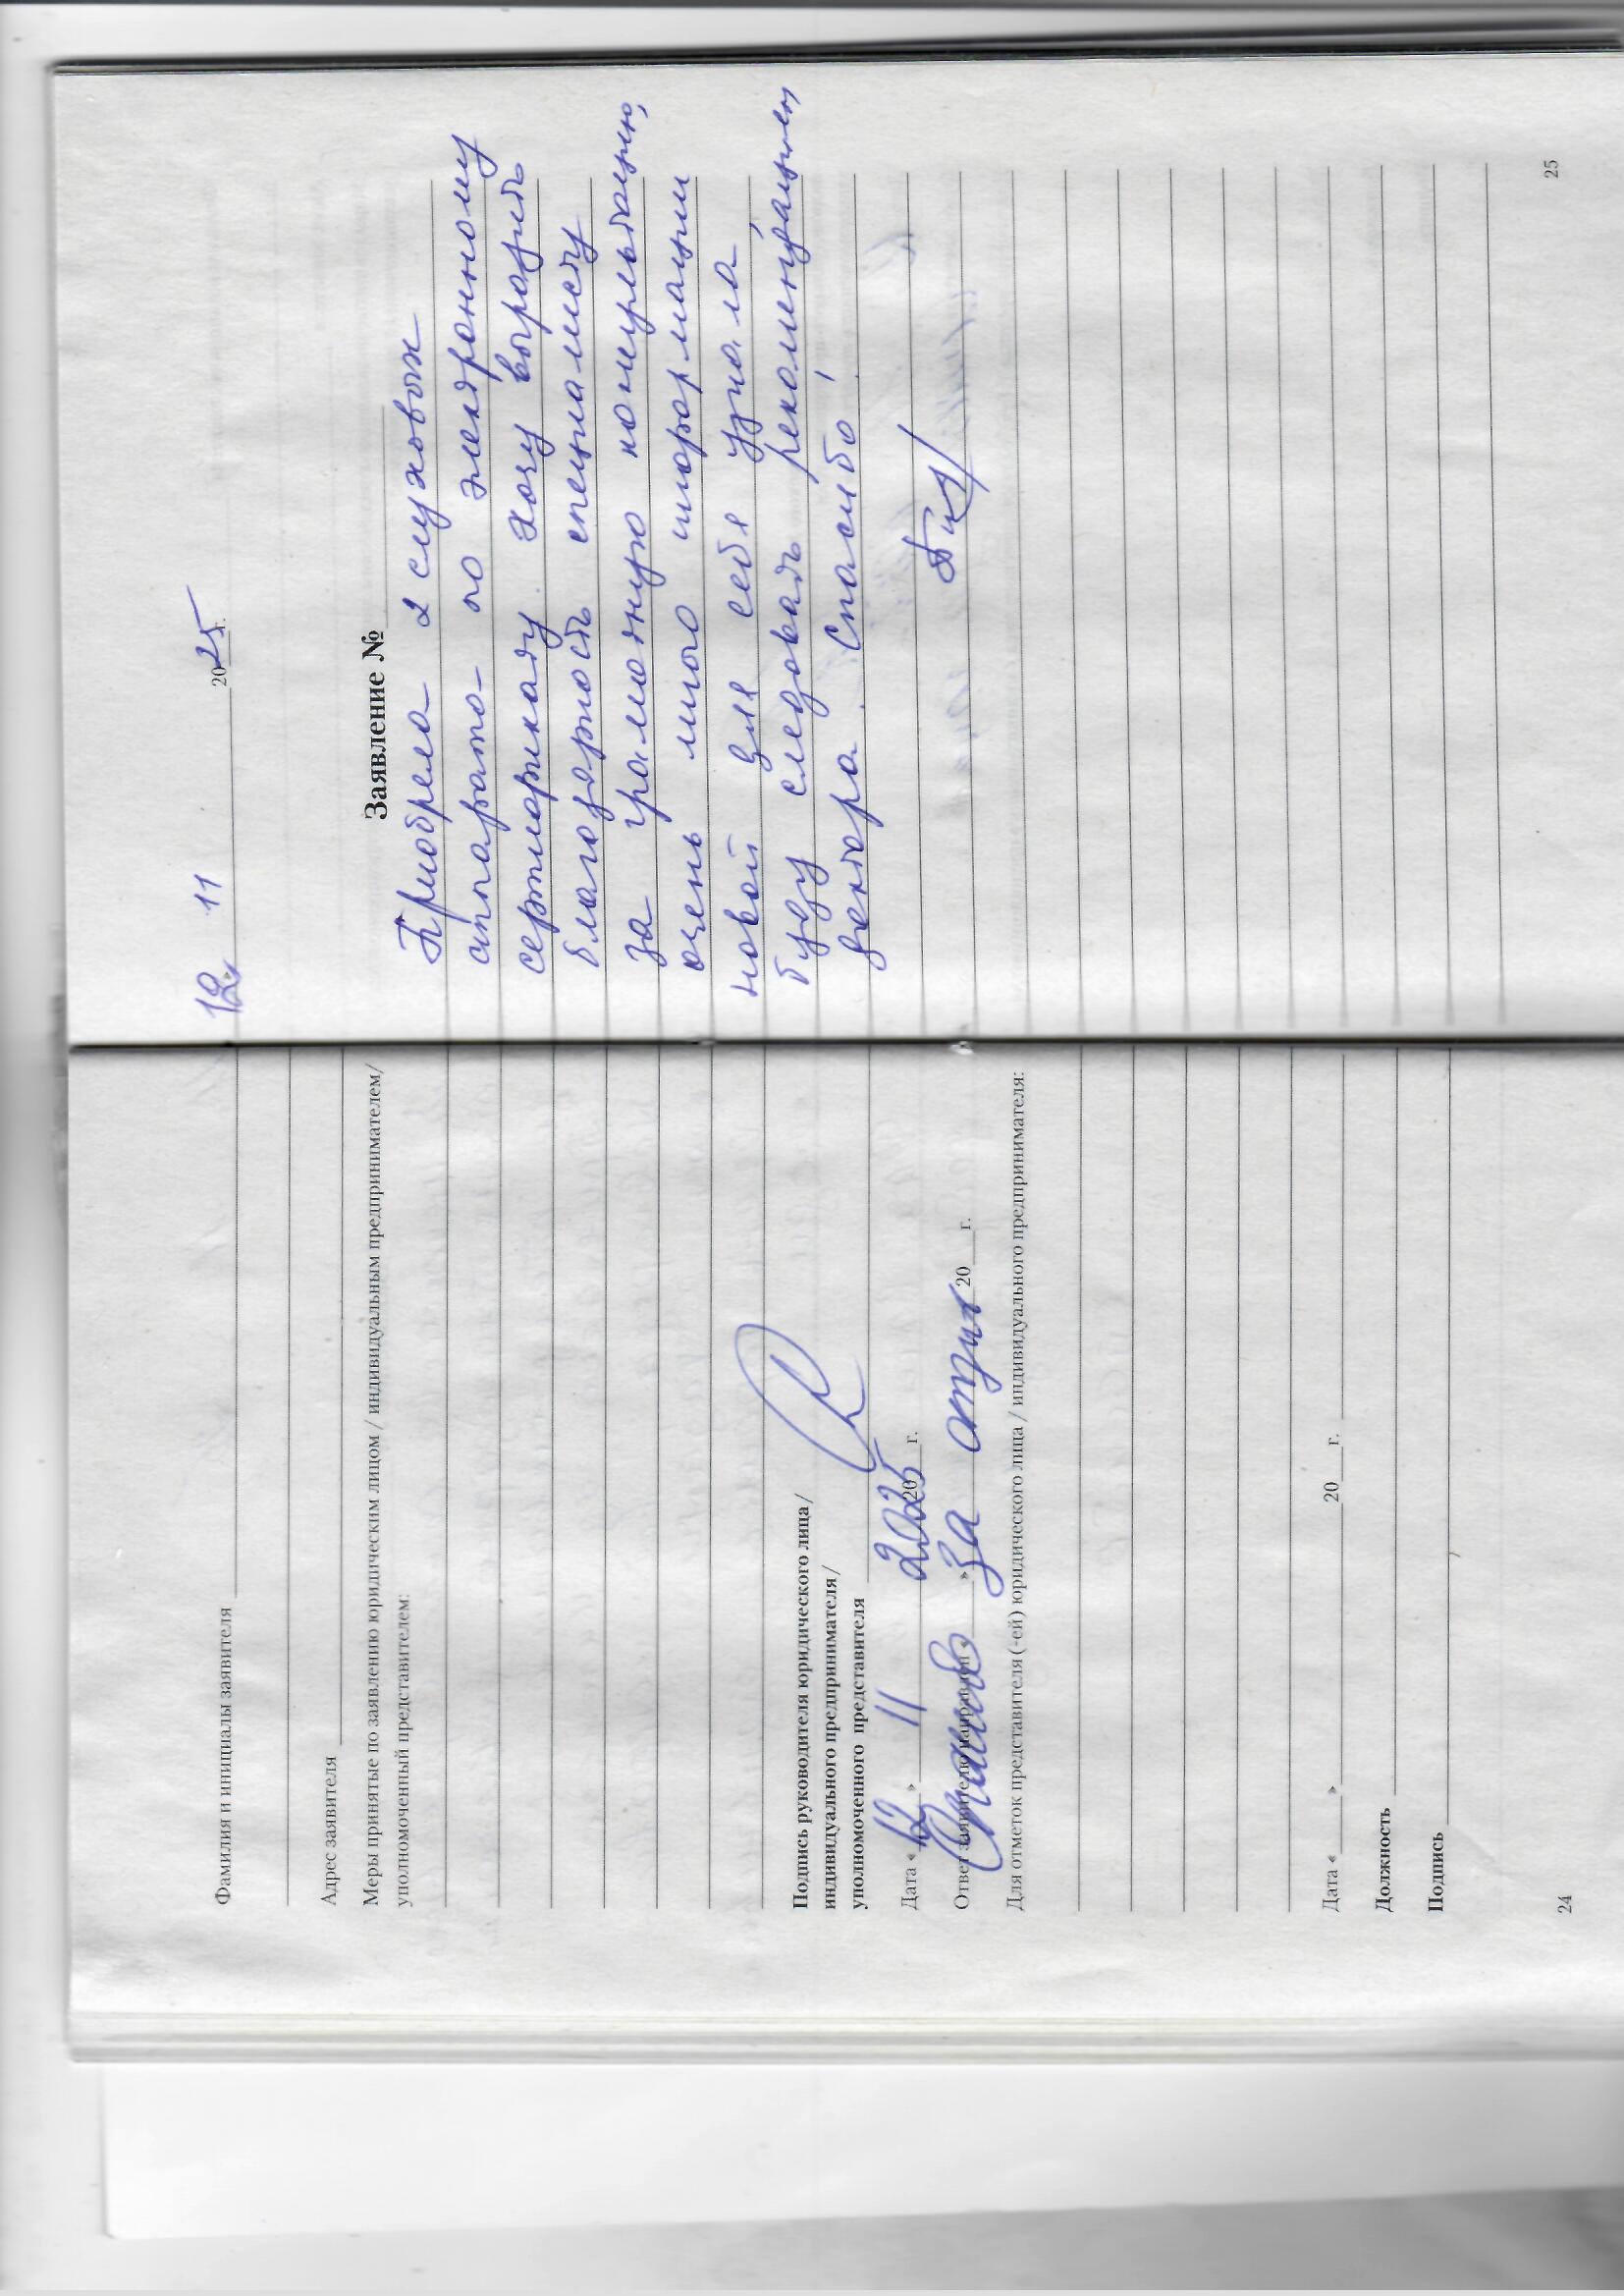 Фамилия и инициалы заявителя
Адрес заявителя
Меры принятые по заявлению юридическим лицом / индивидуальным предпринимателем/
уполномоченный представителем:
Подпись руководителя юридического лица/
индивидуального предпринимателя/
уполномоченного представителя
Дата «12» 11 2025 20 г.
Ответ заявителю направлен « » 20 г.
Спасибо за отзыв
Для отметок представителя (-ей) юридического лица / индивидуального предпринимателя:
Дата « » 20 г.
Должность
Подпись
24
12. 11 2025 г.
Заявление №
Приобрела 2 слуховых
аппарата по электронному
сертификату. Хочу выразить
благодарность специалисту
за грамотную консультацию,
очень много информации
новой для себя узнала,
буду следовать рекомендациям
доктора. Спасибо!
25